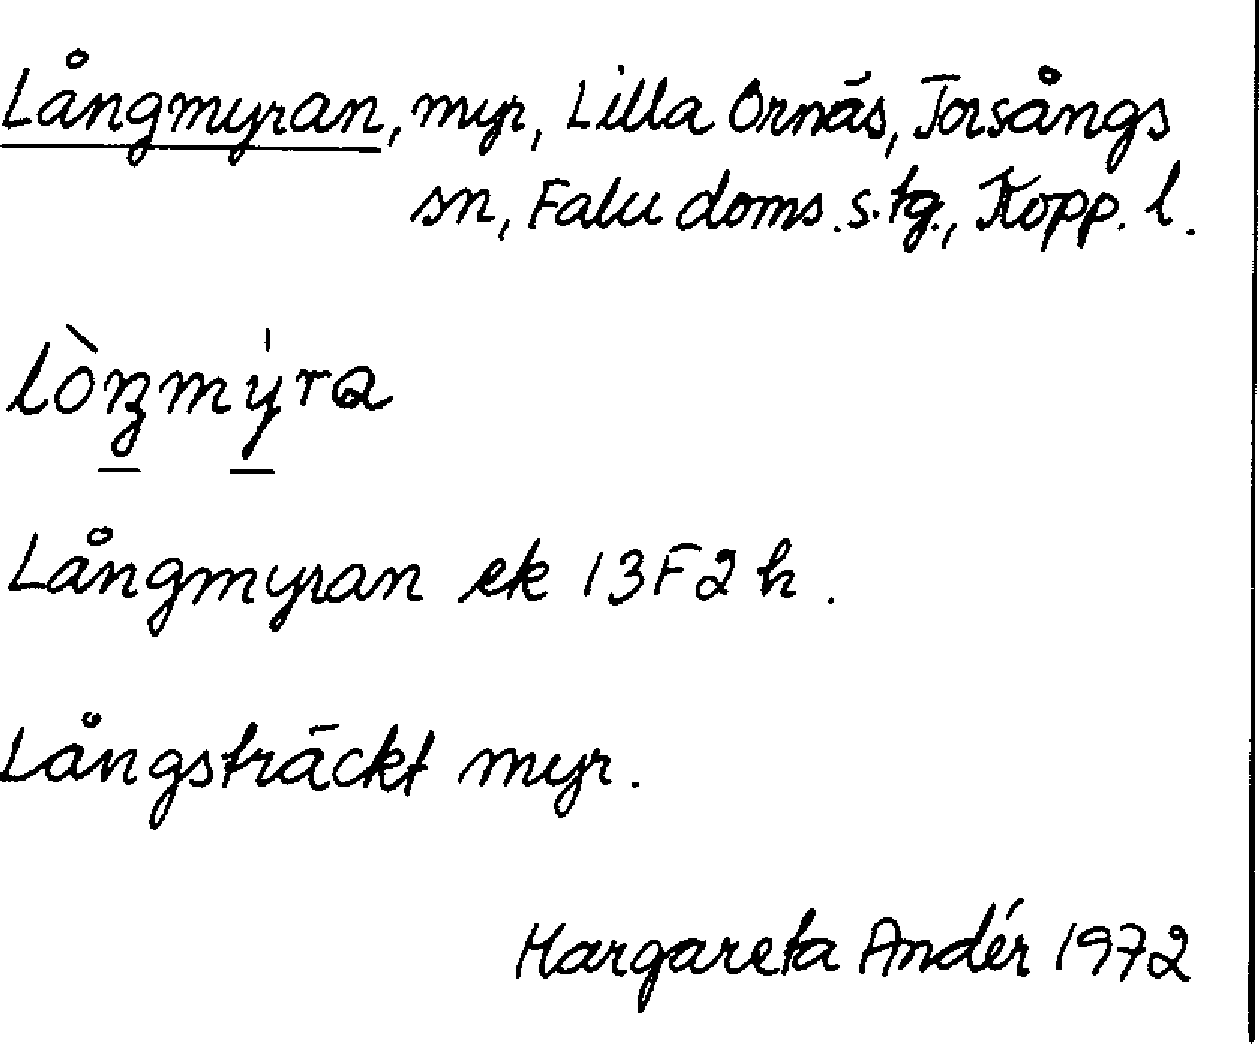 Långmyran, myr, Lilla Ornäs, Torsångs
sn, Falu doms.s.tg., Kopp. l.
lòŋmy̍ra
Långmyran ek 13F2h.
Långsträckt myr.
Margareta Andér 1972